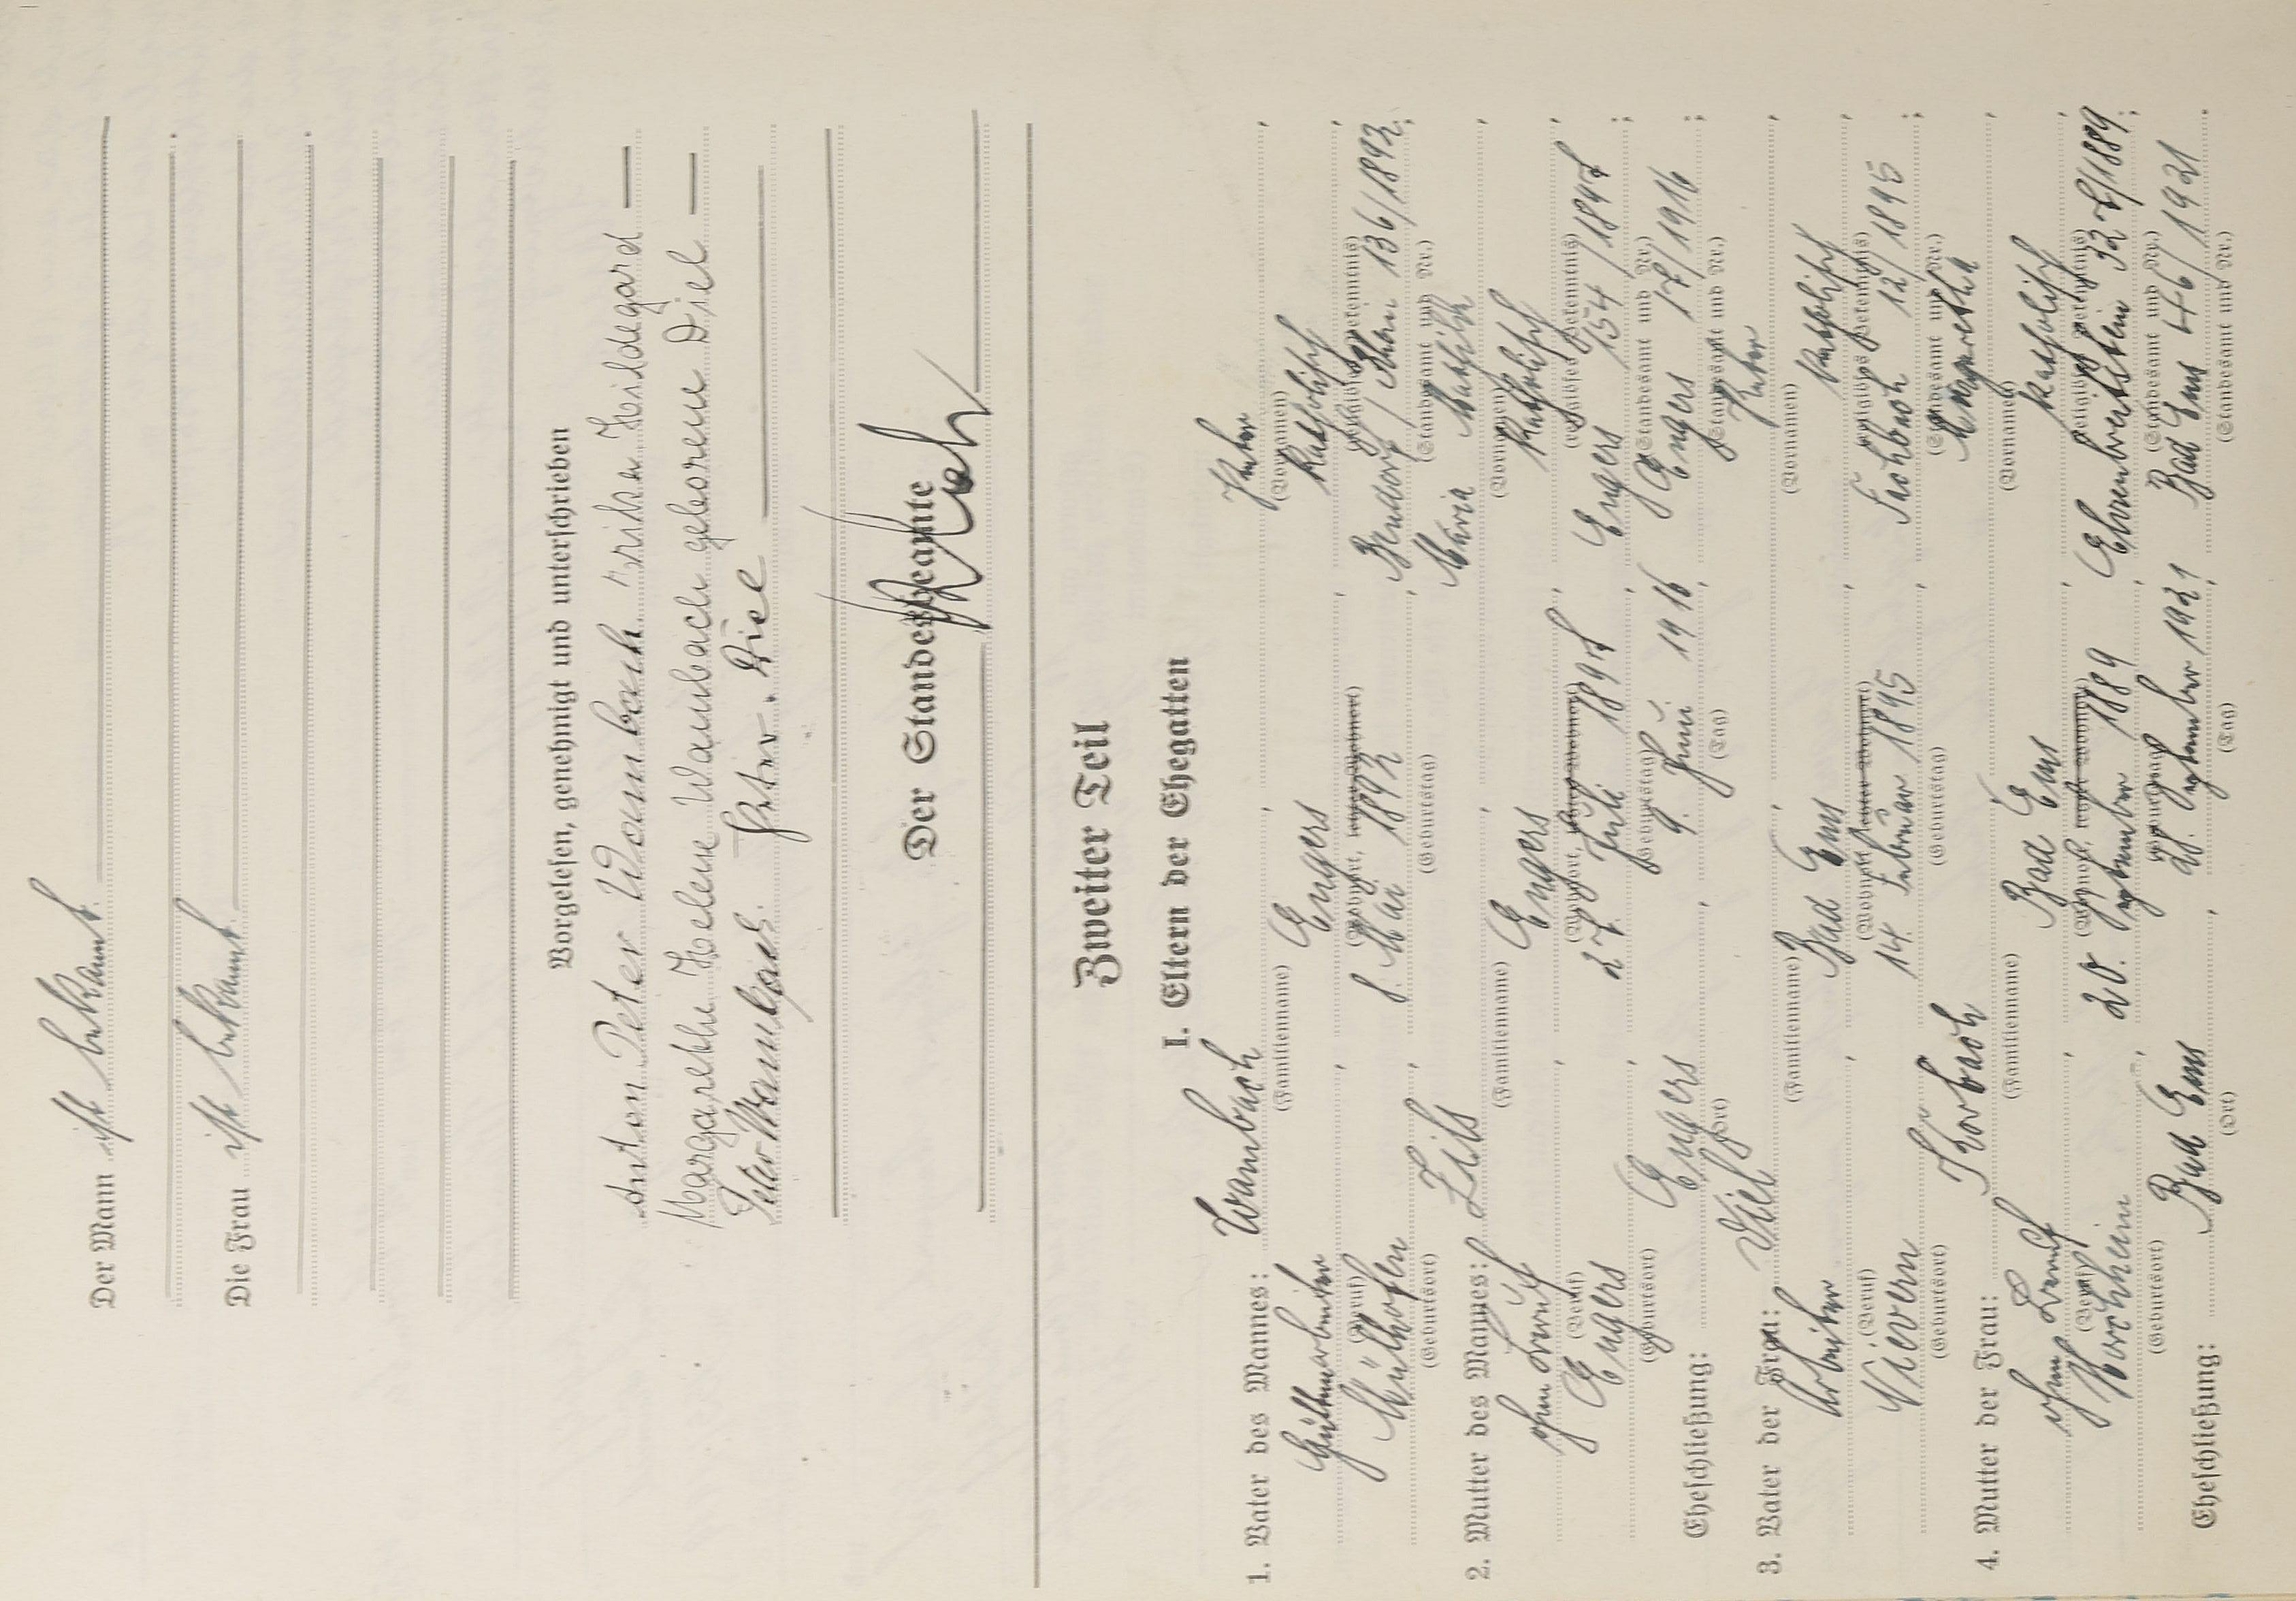 Der Mann ist bekannt.
Die Frau ist bekannt.
Vorgelesen, genehmigt und unterschrieben
Anton Peter Wambach Erika Hildegard
Margarethe Helene Wambach geborene Diel
Peter Wambach. Peter. Diel
Der Standesbeamte
Zweiter Teil
I. Eltern der Ehegatten
1. Vater des Mannes: Wambach Peter
(Familienname) (Vornamen)
Hüttenarbeiter Engers katholisch
(Beruf) (Wohnort, letzter Wohnort) (religiöses Bekenntnis)
Mülhofen 8. Mai 1892 Bendorf / Rhein 136/1892
(Geburtsort) (Geburtstag) (Standesamt und Nr.)
2. Mutter des Mannes: Zils Maria Mathilde
(Familienname) (Vornamen)
ohne Beruf Engers katholisch
(Beruf) (Wohnort, letzter Wohnort) (religiöses Bekenntnis)
Engers 27. Juli 1897 Engers 154/1897
(Geburtsort) (Geburtstag) (Standesamt und Nr.)
Eheschließung: Engers 9. Juni 1916 Engers 17/1916
(Ort) (Tag) (Standesamt und Nr.)
3. Vater der Frau: Diel Peter
(Familienname) (Vornamen)
Arbeiter Bad Ems katholisch
(Beruf) (Wohnort, letzter Wohnort) (religiöses Bekenntnis)
Nievern 14. Februar 1895 Fachbach 12/1895
(Geburtsort) (Geburtstag) (Standesamt und Nr.)
4. Mutter der Frau: Korbach Margaretha
(Familienname) (Vornamen)
ohne Beruf Bad Ems katholisch
(Beruf) (Wohnort, letzter Wohnort) (religiöses Bekenntnis)
Horchheim 20. September 1889 Ehrenbreitstein 327/1889
(Geburtsort) (Geburtstag) (Standesamt und Nr.)
Eheschließung: Bad Ems September 1921 Bad Ems 46/1921
(Ort) (Tag) (Standesamt und Nr.)